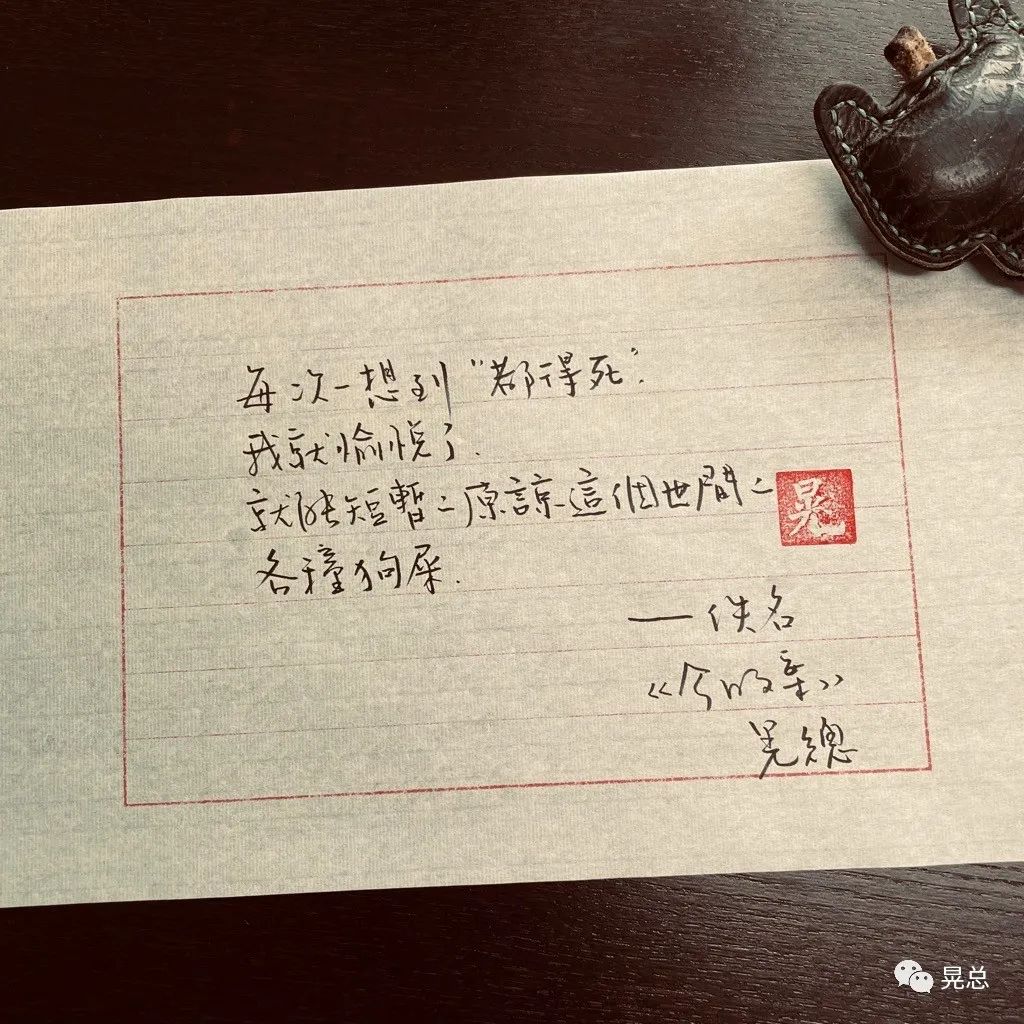 每次一想到“都得死”.
我就愉悅了.
就能短暫之原諒這個世間之
各種狗屎.
晃
——佚名
晃總
晃总